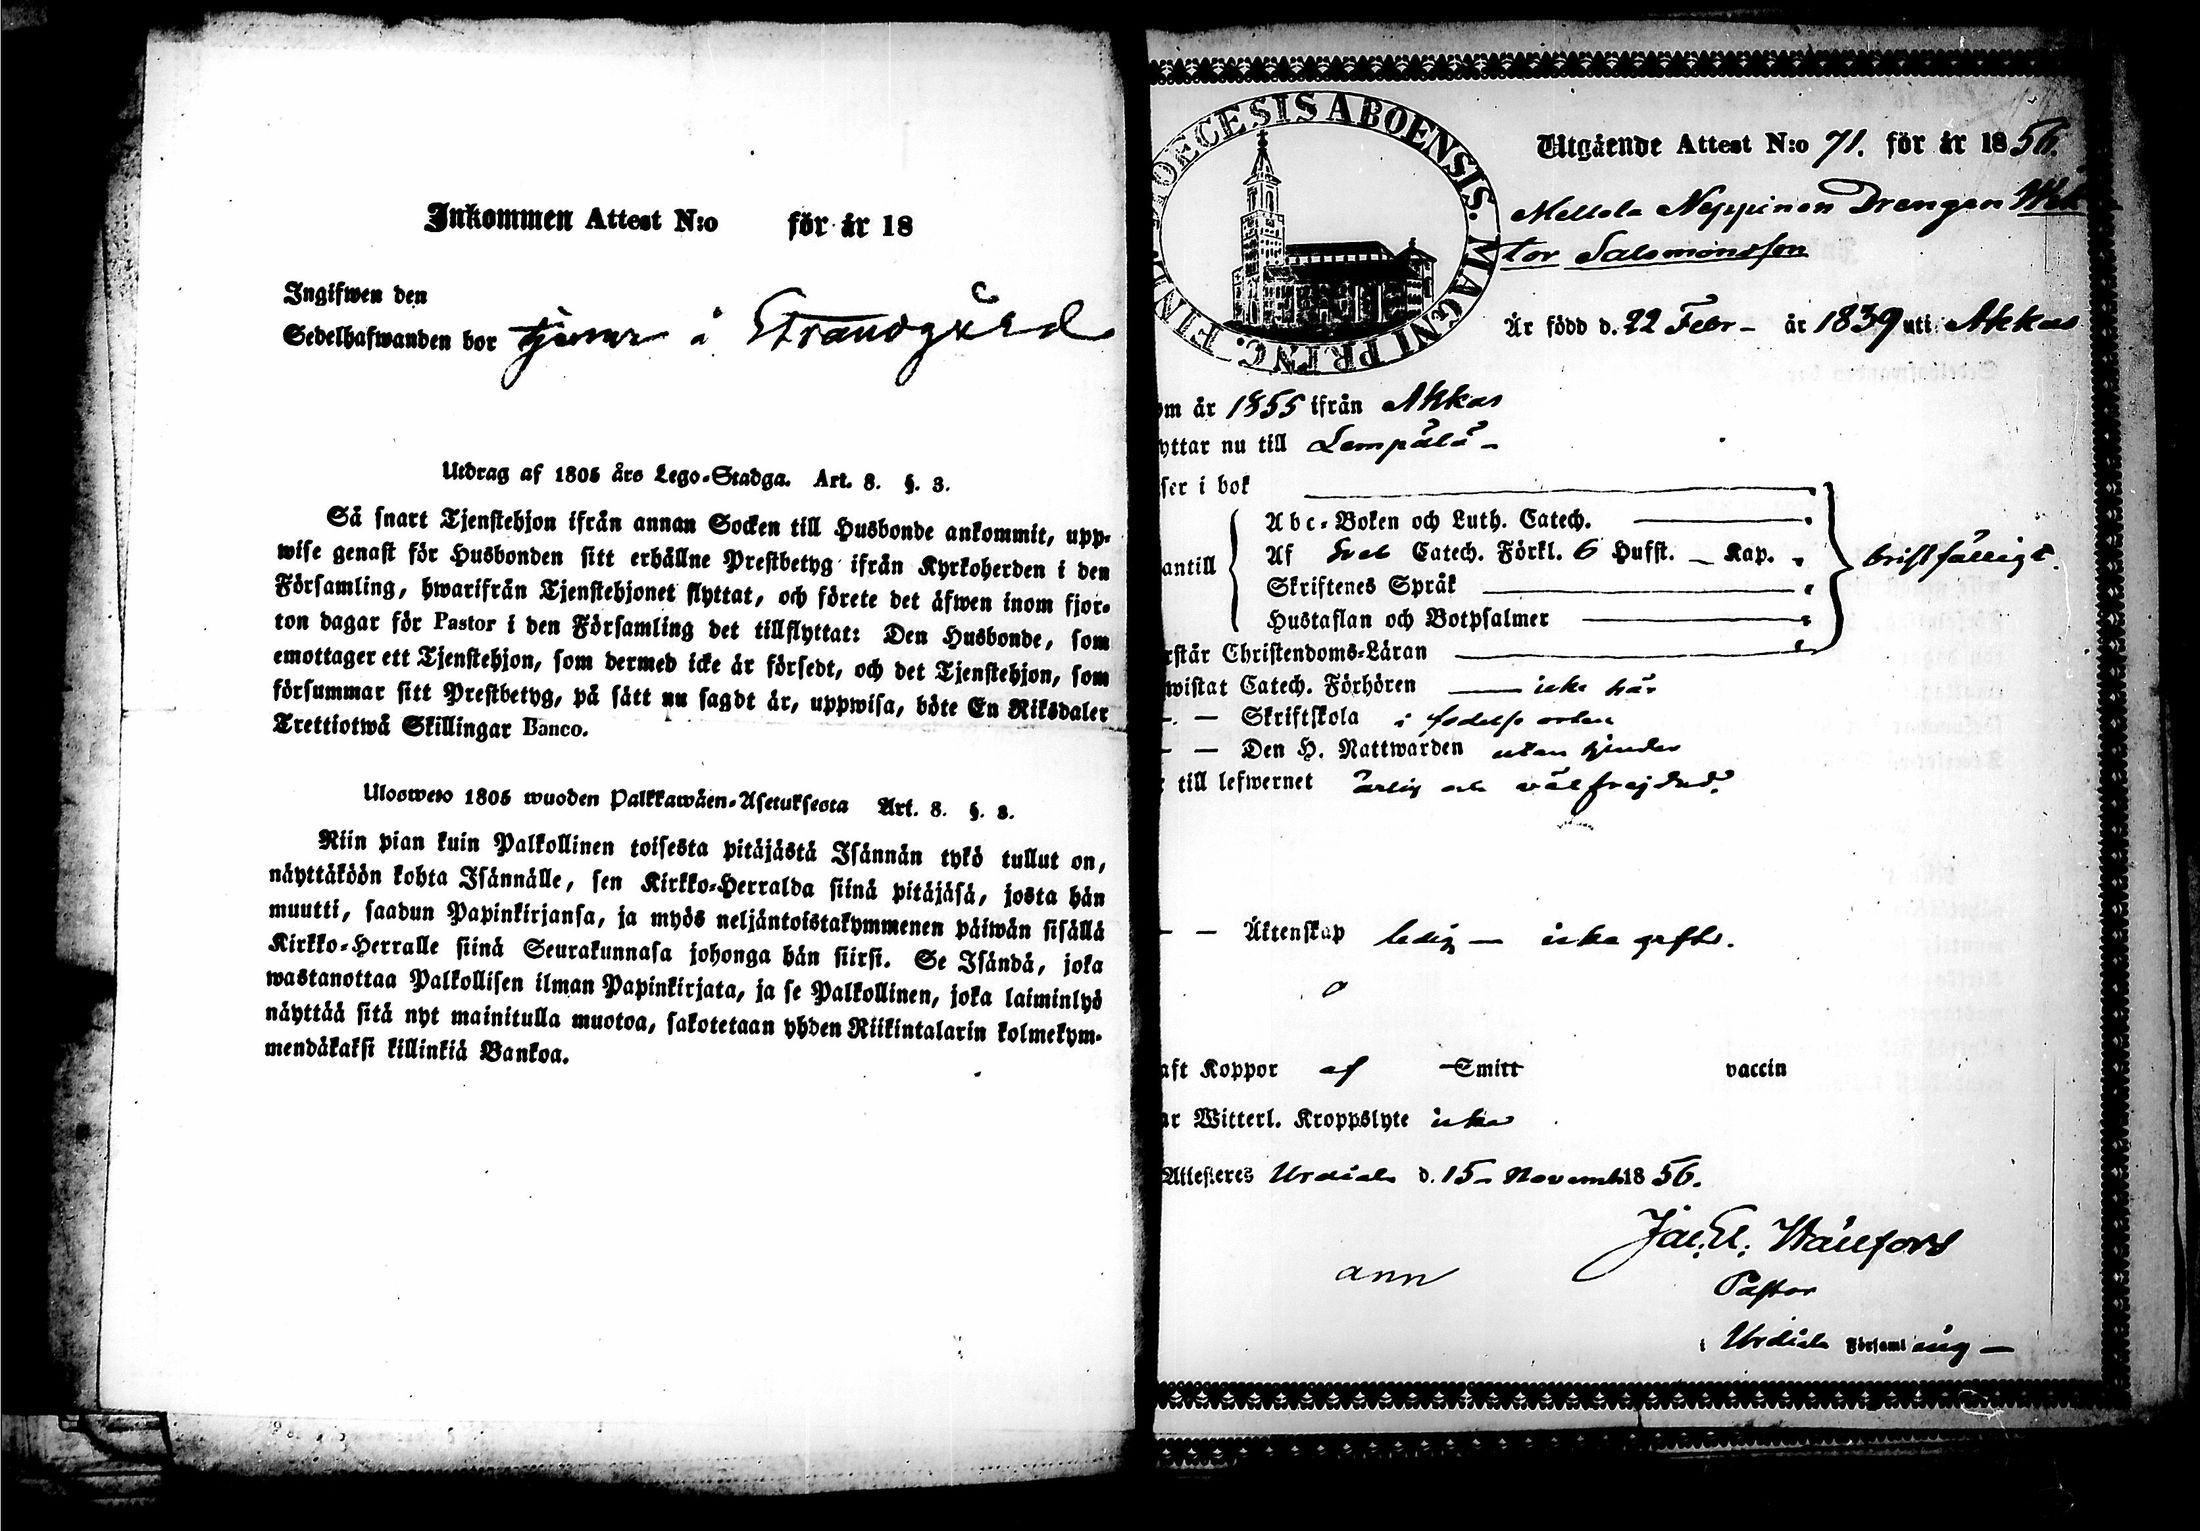 Inkommen Attest N:o för år 18
Ingifwen den
Sedelhafwanden bor tjenar å Strandgård
Utdrag af 1805 års Lego-Stadga. Art. 8. §. 3.
Så snart Tjenstehjon ifrån annan Socken till Husbonde ankommit, upp-
wise genast för Husbonden sitt erhållne Prestbetyg ifrån Kyrkoherden i den
Församling, hwarifrån Tjenstehjonet flyttat, och förete det äfwen inom fjor-
ton dagar för Pastor i den Församling det tillflyttat: Den Husbonde, som
emottager ett Tjenstehjon, som dermed icke är försedt, och det Tjenstehjon, som
försummar sitt Prestbetyg, på sätt nu sagdt är, uppwisa, böte En Riksdaler
Trettiotwå Skillingar Banco.
Ulosweto 1805 wuoden Palkkawäen-Asetuksesta Art. 8. §. 3.
Niin pian kuin Palkollinen toisesta pitäjästä Isännän tykö tullut on,
näyttäköön kohta Isännälle, sen Kirkko-Herralda siinä pitäjäsä, josta hän
muutti, saadun Papinkirjansa, ja myös neljäntoistakymmenen päiwän sisällä
Kirkko-Herralle siinä Seurakunnasa johonga hän siirsi. Se Isändä, joka
wastanottaa Palkollisen ilman Papinkirjata, ja se Palkollinen, joka laiminlyö
näyttää sitä nyt mainitulla muotoa, sakotetaan yhden Riikintalarin kolmekym-
mendäkaksi killinkiä Bankoa.
DIOECESIS ABOENSIS. MAGNI PRINC. FINL.
Utgående Attest N:o 71. för år 1856.
Mellola Neppinen Drengen Wik
tor Salomonsson
År född d. 22 Febr – år 1839 uti Akkas
om år 1855 ifrån Akkas
yttar nu till Lempälä –
ser i bok
Abc-Boken och Luth. Catech.
antill Af Sveb Catech. Förkl. 6 Hufst. – Kap. bristfälligt.
Skriftenes Språk
Hustaflan och Botpsalmer
rstår Christendoms-Läran
wistat Catech. Förhören icke här
– Skriftskola i födelse orten
– – Den H. Nattwarden utan hinder
till lefwernet ärlig och välfrejdad.
– – Äktenskap ledig – icke gift.
aft Koppor af Smitt vaccin
ar Witterl. Kroppslyte icke
Attesteres Urdiala d. 15 – Novemb. 1856.
Pastor
i Urdiala Församling –